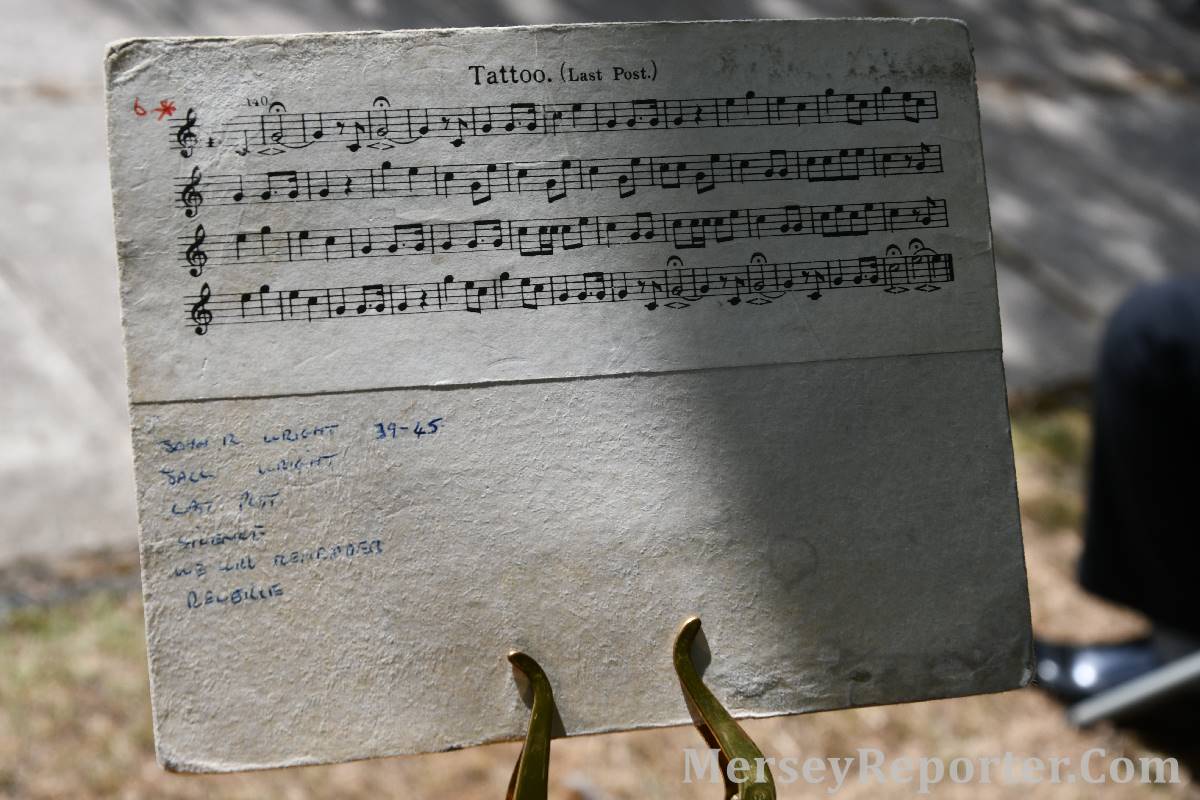 Tattoo. (Last Post.)
6 *
140
JOHN R WRIGHT 39-45
JACK WRIGHT
LAST POST
SILENCE
WE WILL REMEMBER
REVEILLE
MerseyReporter.Com